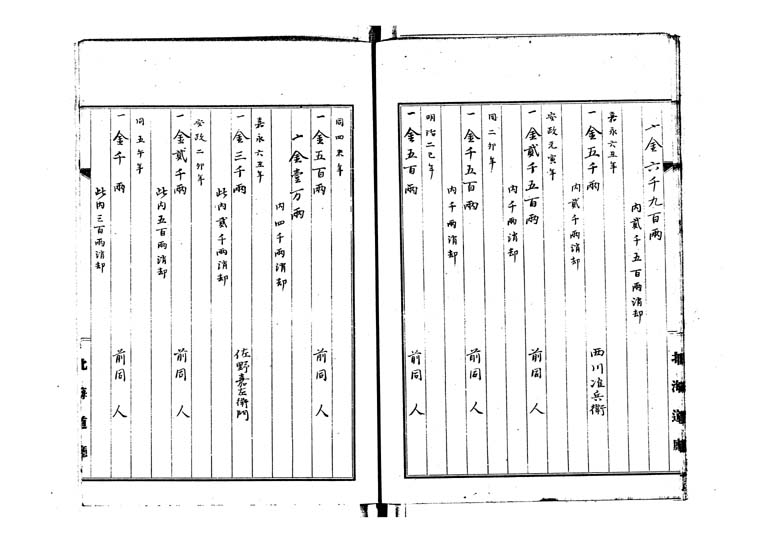 一金六千九百両
内貳千五百両消却
嘉永六丑年
一金五千両 西川准兵衛
内貳千両消却
安政元寅年
一金貳千五百両 前同人
内千両消却
同二卯年
一金千五百両 前同人
内千両消却
明治二巳年
一金五百両 前同人
北海道庁
同四未年
一金五百両 前同人
一金壹万両
内四千両消却
嘉永六丑年
一金三千両 佐野嘉左衛門
此内貳千両消却
安政二卯年
一金貳千両 前同人
此内五百両消却
同五午年
一金千両 前同人
此内三百両消却
北海道庁